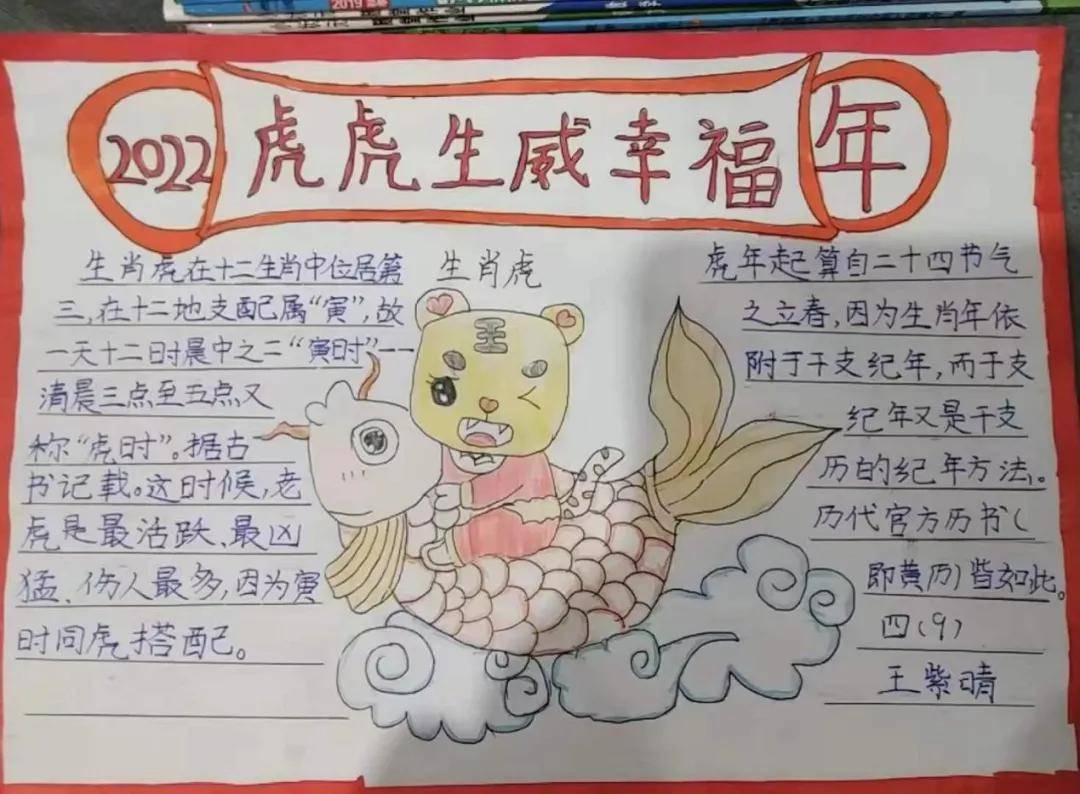 2019
2022 虎虎生威幸福年
生肖虎在十二生肖中位居第
三,在十二地支配属“寅”,故
一天十二日时晨中之二“寅时”一
清晨三点至五点又
称“虎时”。据古
书记载。这时候,老
虎是最活跃、最凶
猛、伤人最多,因为寅
时同虎搭配。
生肖虎
王
虎年起算自二十四节气
之立春,因为生肖年依
附于干支纪年,而干支
纪年又是干支
历的纪年方法。
历代官方历书(
即黄历)皆如此。
四(9)
王紫晴